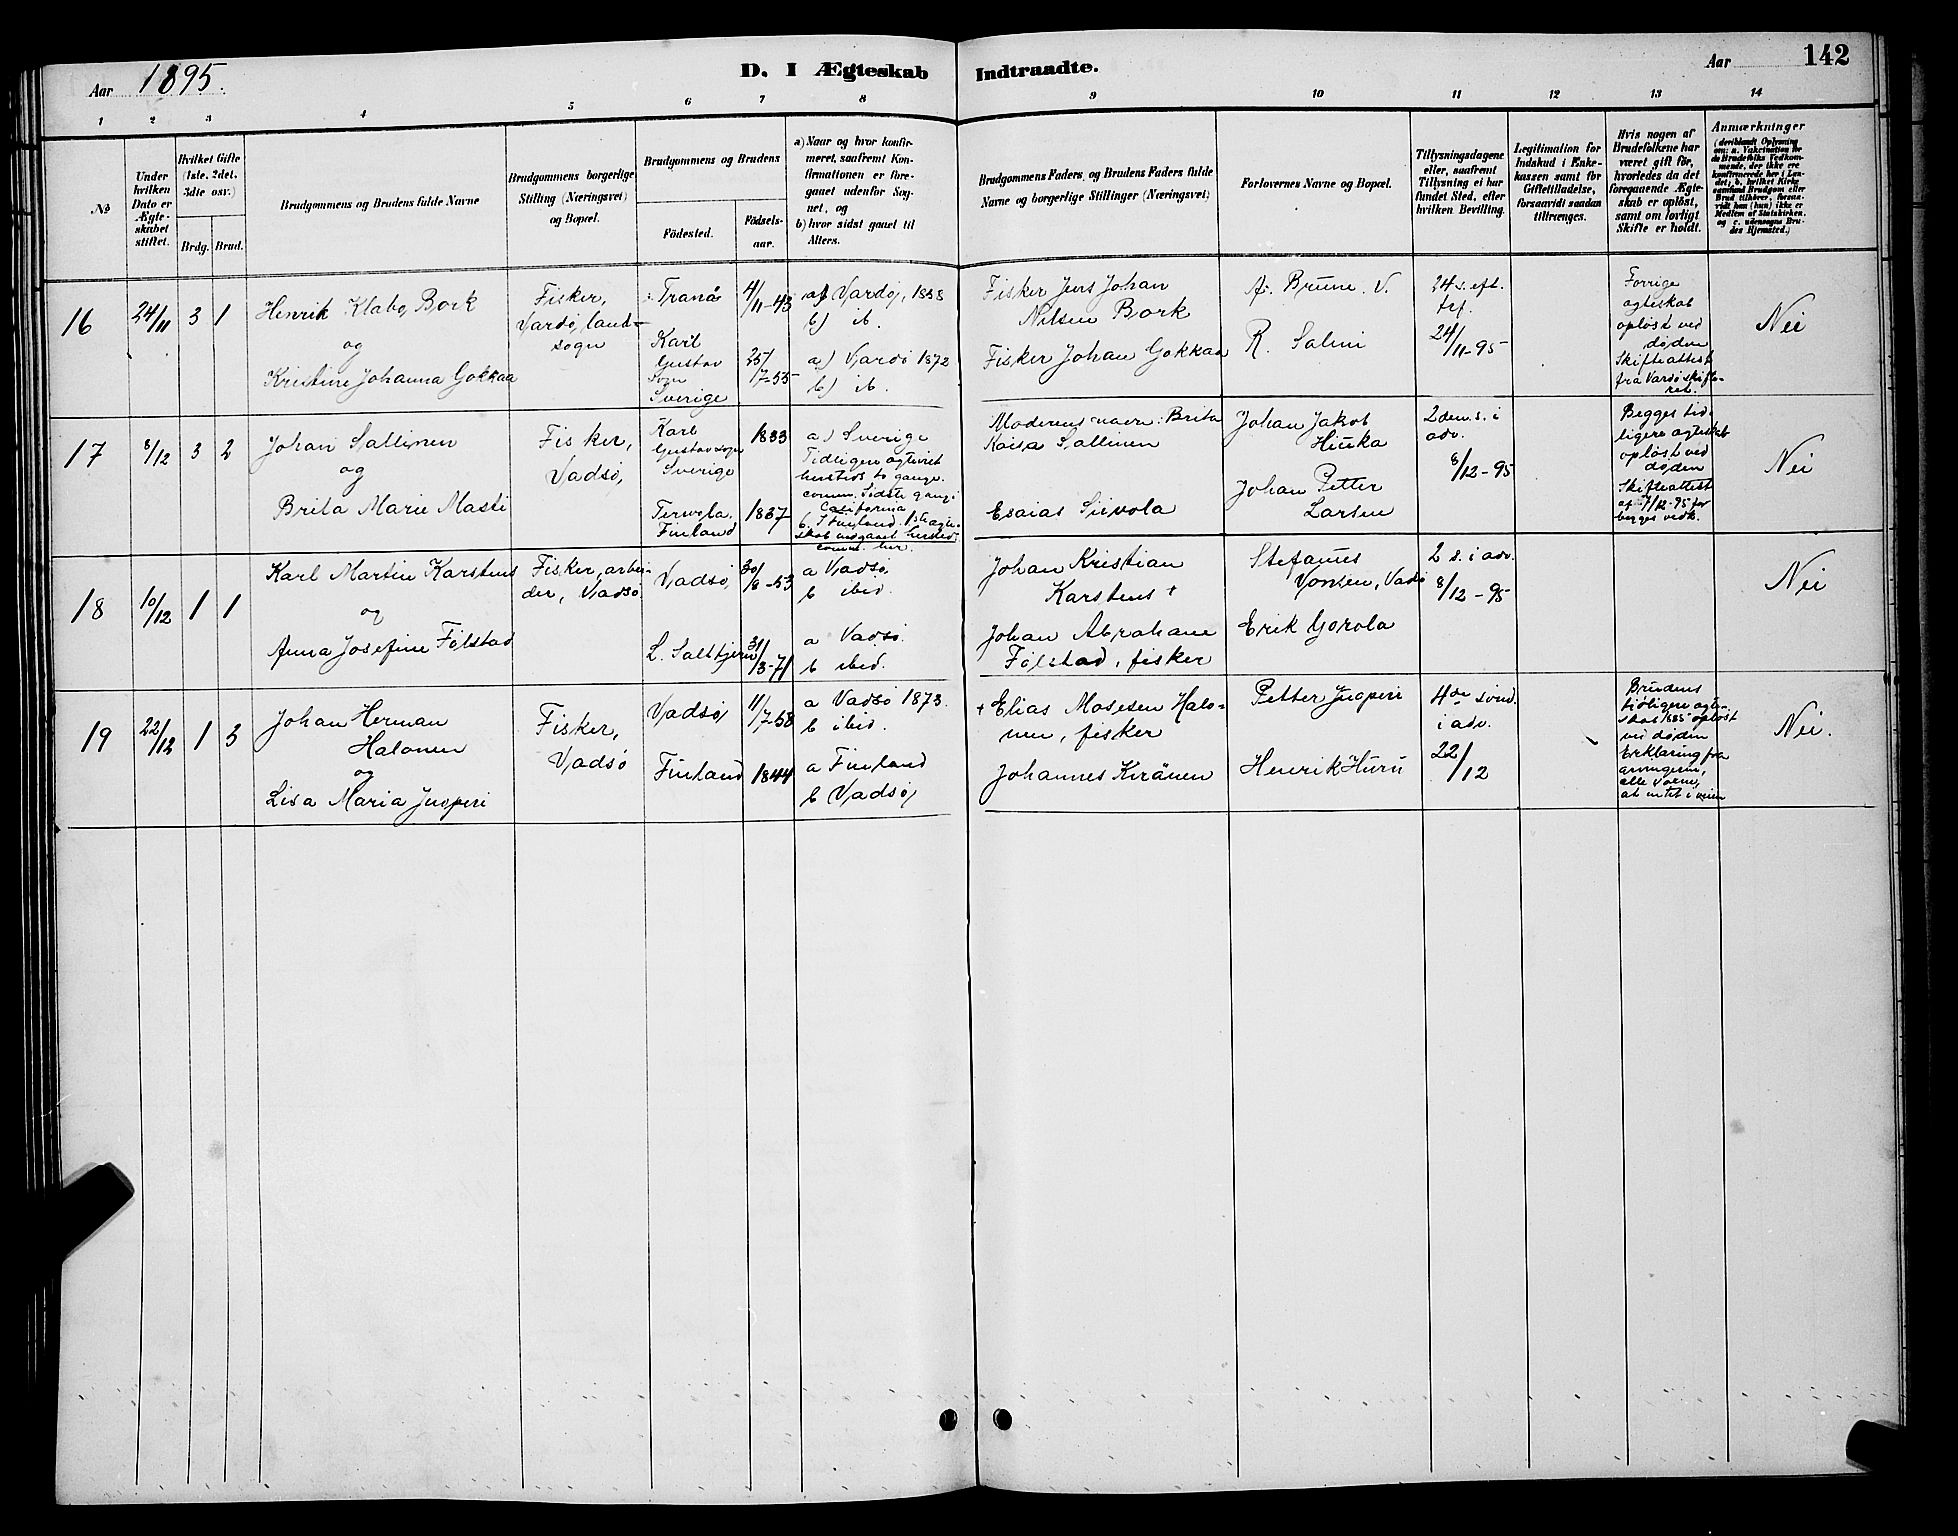 Aar 1895.
D. I Ægteskab Indtraadte.
Aar 142
1 2 3 4 5 6 7 8 9 10 11 12 13 14
No
Under hvilken Dato er Ægte-skabet stiftet.
Hvilket Gifte (1ste, 2det, 3dte osv.)
Brdg. Brud.
Brudgommens og Brudens fulde Navne
Brudgommens borgerlige Stilling (Næringsvei) og Bopæl.
Brudgommens og Brudens
Födested.
Födsels-aar.
a) Naar og hvor konfir-meret, saafremt Kon-firmationen er fore-gaaet udenfor Sog-net, og
b) hvor sidst gaaet til Alters.
Brudgommens Faders, og Brudens Faders fulde Navne og borgerlige Stillinger (Næringsvei)
Forlovernes Navne og Bopæl.
Tillysningsdagene eller, saafremt Tillysning ei har fundet Sted, efter hvilken Bevilling.
Legitimation for Indskud i Enke-kassen samt for Giftetilladelse, forsaavidt saadan tiltrænges.
Hvis nogen af Brudefolkene har været gift för, hvorledes da det foregaaende Ægte-skab er oplöst, samt om lovligt Skifte er holdt.
Anmærkninger (deriblandt Oplysning om: a. Vakcination for de Brudefolks Vedkom-mende, der ikke ere konfirmerede her i Lan-det; b. hvilket Kirke-samfund Brudgom eller Brud tilhörer, forsaa-vidt han (hun) ikke er Medlem af Statskirken. og c. udensogns Bru-des Hjemsted.)
16 24/11 3 1
Henrik Klabo Bork
og
Kristine Johanna Gokkaa
Fisker,
Vardø land-
sogn
Tranø
Karl
Gustav
Sogn
Sverige
4/11-43
25/7-55
a) Vardø, 1858
b) ib.
a) Vardø 1872
b) ib.
Fisker Jens Johan
Nilsen Bork
Fisker Johan Gokkaa
A. Brune. V.
R. Salini
24 s. eft.
tref.
24/11-95
Forrige
ægteskab
opløst ved
døden
Skifteattest
fra Vardø skifte-
ret.
Nei
17 8/12 3 2
Johan Sallinen
og
Brita Marie Masti
Fisker,
Vadsø,
Karl
Gustav sogn
Sverige
Tervola,
Finland
1833
1837
a) Sverige
Tidligere ægteviet
hersteds to gange.
comm. sidste gang i
California
b. I Finland. 1ste ægte-
skab indgaaet hersted.
comm. her.
Moderens navn: Brita
Kaisa Sallinen
Esaias Siivola
Johan Jakob
Hiuka
Johan Petter
Larsen
2den s. i
adv.
8/12-95
Begges tid-
ligere ægteskab
opløst ved
døden
Skifteattest
af 7/12-95 for
begges vedk.
Nei
18 10/12 1 1
Karl Martin Karstens
og
Anna Josefine Følstad
Fisker, arbei-
der, Vadsø
Vadsø,
L. Saltfjern
30/8-53
31/3-71
a Vadsø
b ibid.
a Vadsø.
b ibid.
Johan Kristian
Karstens +
Johan Abraham
Følstad, fisker
Stefanus
Vonsen, Vadsø
Erik Gorola
2 s. i adv.
8/12-95
Nei
19 22/12 1 3
Johan Herman
Halonen
og
Lisa Maria Juoperi
Fisker,
Vadsø
Vadsø,
Finland
11/7-58
1844
a Vadsø 1873.
b ibid.
a Finland
b Vadsø,
+ Elias Mosesen Halo-
nen, fisker
Johannes Keränen
Petter Juoperi
Henrik Huru
4de sønd.
i adv.
22/12
Brudens
tidligere ægte-
skab 1885 opløst
ved døden
Erklæring fra
arvingerne,
alle vorne,
at intet i veien
Nei.